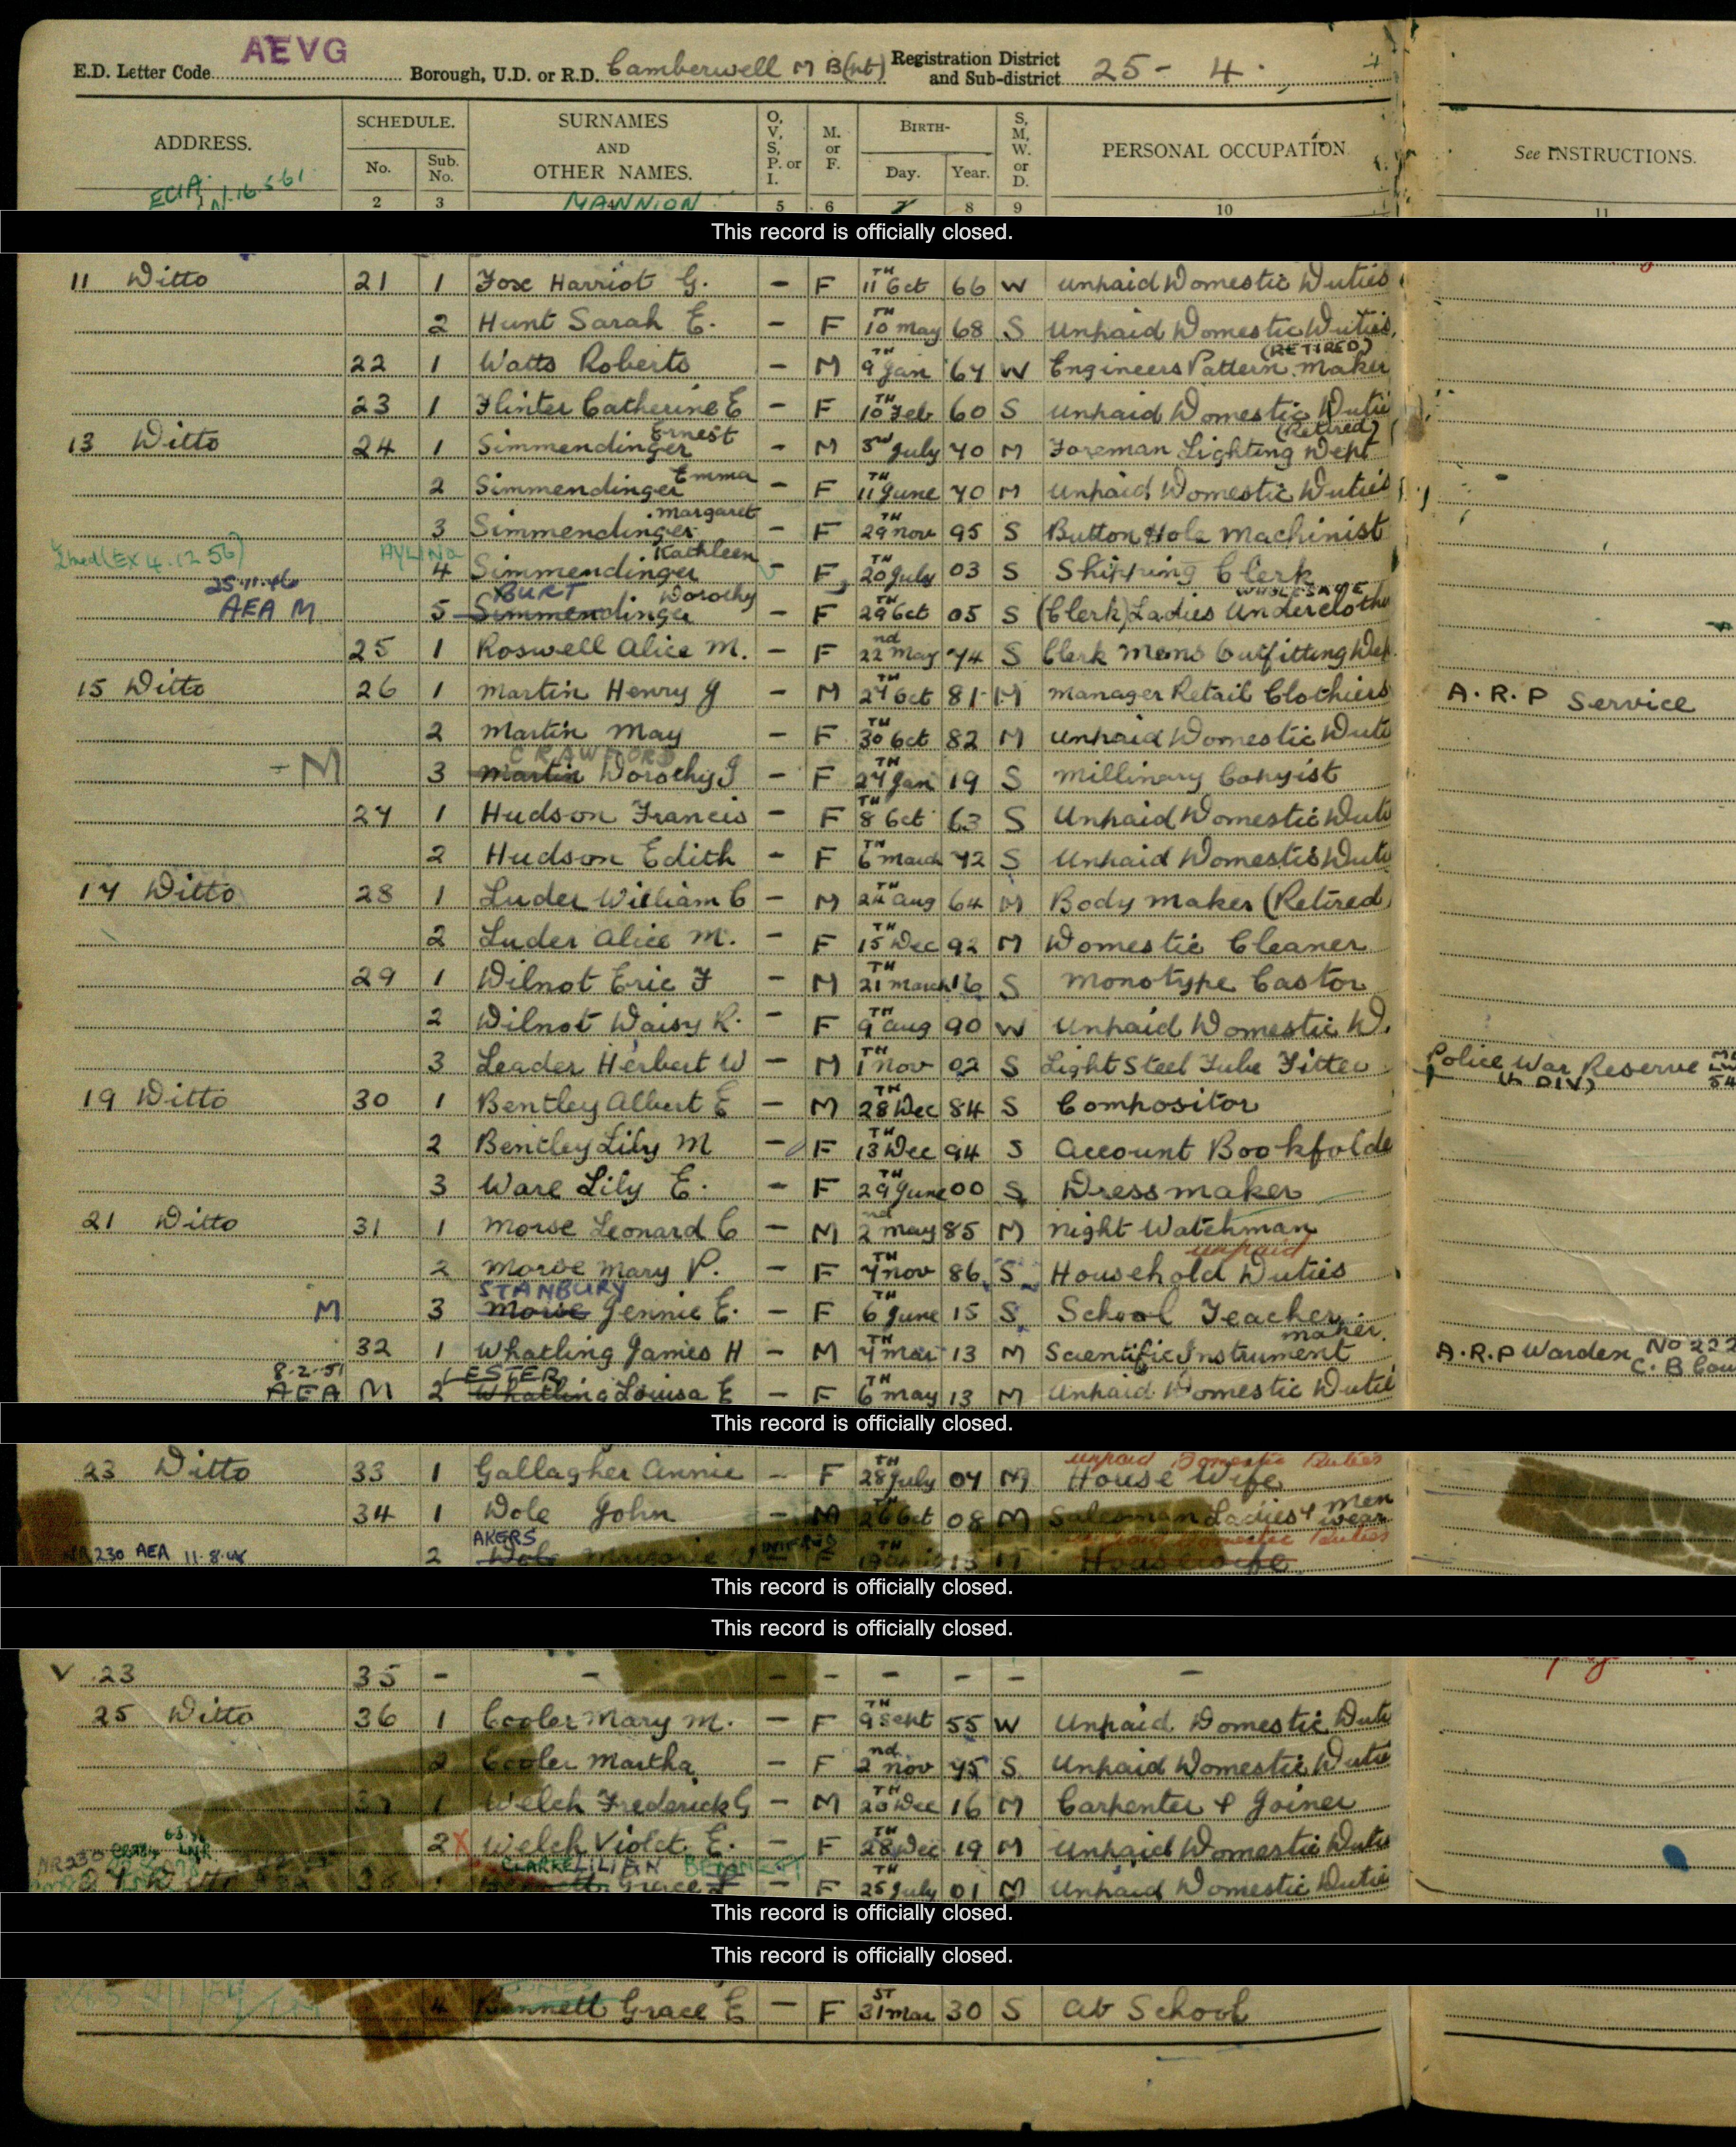 E.D. Letter Code AEVG Borough, U.D. or R.D. Camberwell M B(pt) Registration District and Sub-district 25 - 4.
ADDRESS. SCHEDULE. No. Sub. No. SURNAMES AND OTHER NAMES. O, V, S, P. or I. M. or F. BIRTH- Day. Year. S, M, W. or D. PERSONAL OCCUPATION See INSTRUCTIONS.
MANNION
2 3 5 6 7 8 9 10 11
This record is officially closed.
11 Ditto 21 1 Fox Harriot G. - F 11TH Oct 66 W Unpaid Domestic Duties
2 Hunt Sarah E. - F 10TH May 68 S Unpaid Domestic Duties
22 1 Watts Roberts - M 9TH Jan 64 W Engineers Pattern Maker (RETIRED)
23 1 Flinter Catherine E - F 10TH Feb 60 S Unpaid Domestic Dutie
13 Ditto 24 1 Simmendinger Ernest - M 3rd July 70 M Foreman Lighting Dept (Retired)
2 Simmendinger Emma - F 11TH June 70 M Unpaid Domestic Duties
3 Simmendinger Margaret - F 29TH Nov 95 S Button Hole Machinist
4 Simmendinger Kathleen - F 20TH July 03 S Shipping Clerk
25.11.46 AEA M BURT
5 Simmendinger Dorothy - F 29TH Oct 05 S (Clerk) Ladies Underclothe WHOLESALE
25 1 Roswell Alice M. - F 22nd May 74 S Clerk Mens Outfitting Dep.
15 Ditto 26 1 Martin Henry J - M 27TH Oct 81 M Manager Retail Clothiers A.R.P Service
2 Martin May - F 30TH Oct 82 M Unpaid Domestic Duti
- M CRAWFORD
3 Martin Dorothy J - F 27TH Jan 19 S Millinary Copyist
27 1 Hudson Francis - F 8TH Oct 63 S Unpaid Domestic Duti
2 Hudson Edith - F 6TH March 72 S Unpaid Domestic Duti
17 Ditto 28 1 Luder William C - M 24TH Aug 64 M Body Maker (Retired)
2 Luder Alice M. - F 15TH Dec 92 M Domestic Cleaner
29 1 Wilnot Eric F - M 21TH March 16 S Monotype Castor
2 Wilnot Daisy R. - F 9TH Aug 90 W Unpaid Domestic D.
3 Leader Herbert W - M 1TH Nov 02 S Light Steel Tube Fitter Police War Reserve
19 Ditto 30 1 Bentley Albert E - M 28TH Dec 84 S Compositor
2 Bentley Lily M - F 13TH Dec 94 S Account Bookfolde
3 Ware Lily E. - F 29TH June 00 S Dressmaker
21 Ditto 31 1 Morse Leonard C - M 2nd May 85 M Night Watchman
2 Morse Mary P. - F 7TH Nov 86 S Household Duties unpaid
M STANBURY
3 Morse Jennie E. - F 6TH June 15 S School Teacher
32 1 Whatling James H - M 7TH Mar 13 M Scientific Instrument maker. A.R.P Warden No 222
8.2.51 AEA M LESTER
2 Whatling Louisa E - F 6TH May 13 M Unpaid Domestic Dutie
This record is officially closed.
23 Ditto 33 1 Gallagher Annie - F 28TH July 04 M House Wife unpaid Domestic Duties
34 1 Dole John - M 26TH Oct 08 M Salesman Ladies & Men wear
230 AEA 11.8.48 AKERS
2 Dole Marjorie WINIFRED - F 19TH 13 M Housewife unpaid Domestic Duties
This record is officially closed.
This record is officially closed.
V 23 35 - - - - - - - -
25 Ditto 36 1 Cooler Mary M. - F 9TH Sept 55 W Unpaid Domestic Duti
2 Cooler Martha - F 2nd Nov 75 S Unpaid Domestic Dutie
37 1 Welch Frederick G - M 20TH Dec 16 M Carpenter & Joiner
2 X Welch Violet E. - F 28TH Dec 19 M Unpaid Domestic Dutie
NR230 CLARKE LILIAN BENNETT
27 Ditto 38 Grace - F 25TH July 01 M Unpaid Domestic Dutie
This record is officially closed.
This record is officially closed.
4 Bennett Grace E - F 31ST Mar 30 S At School